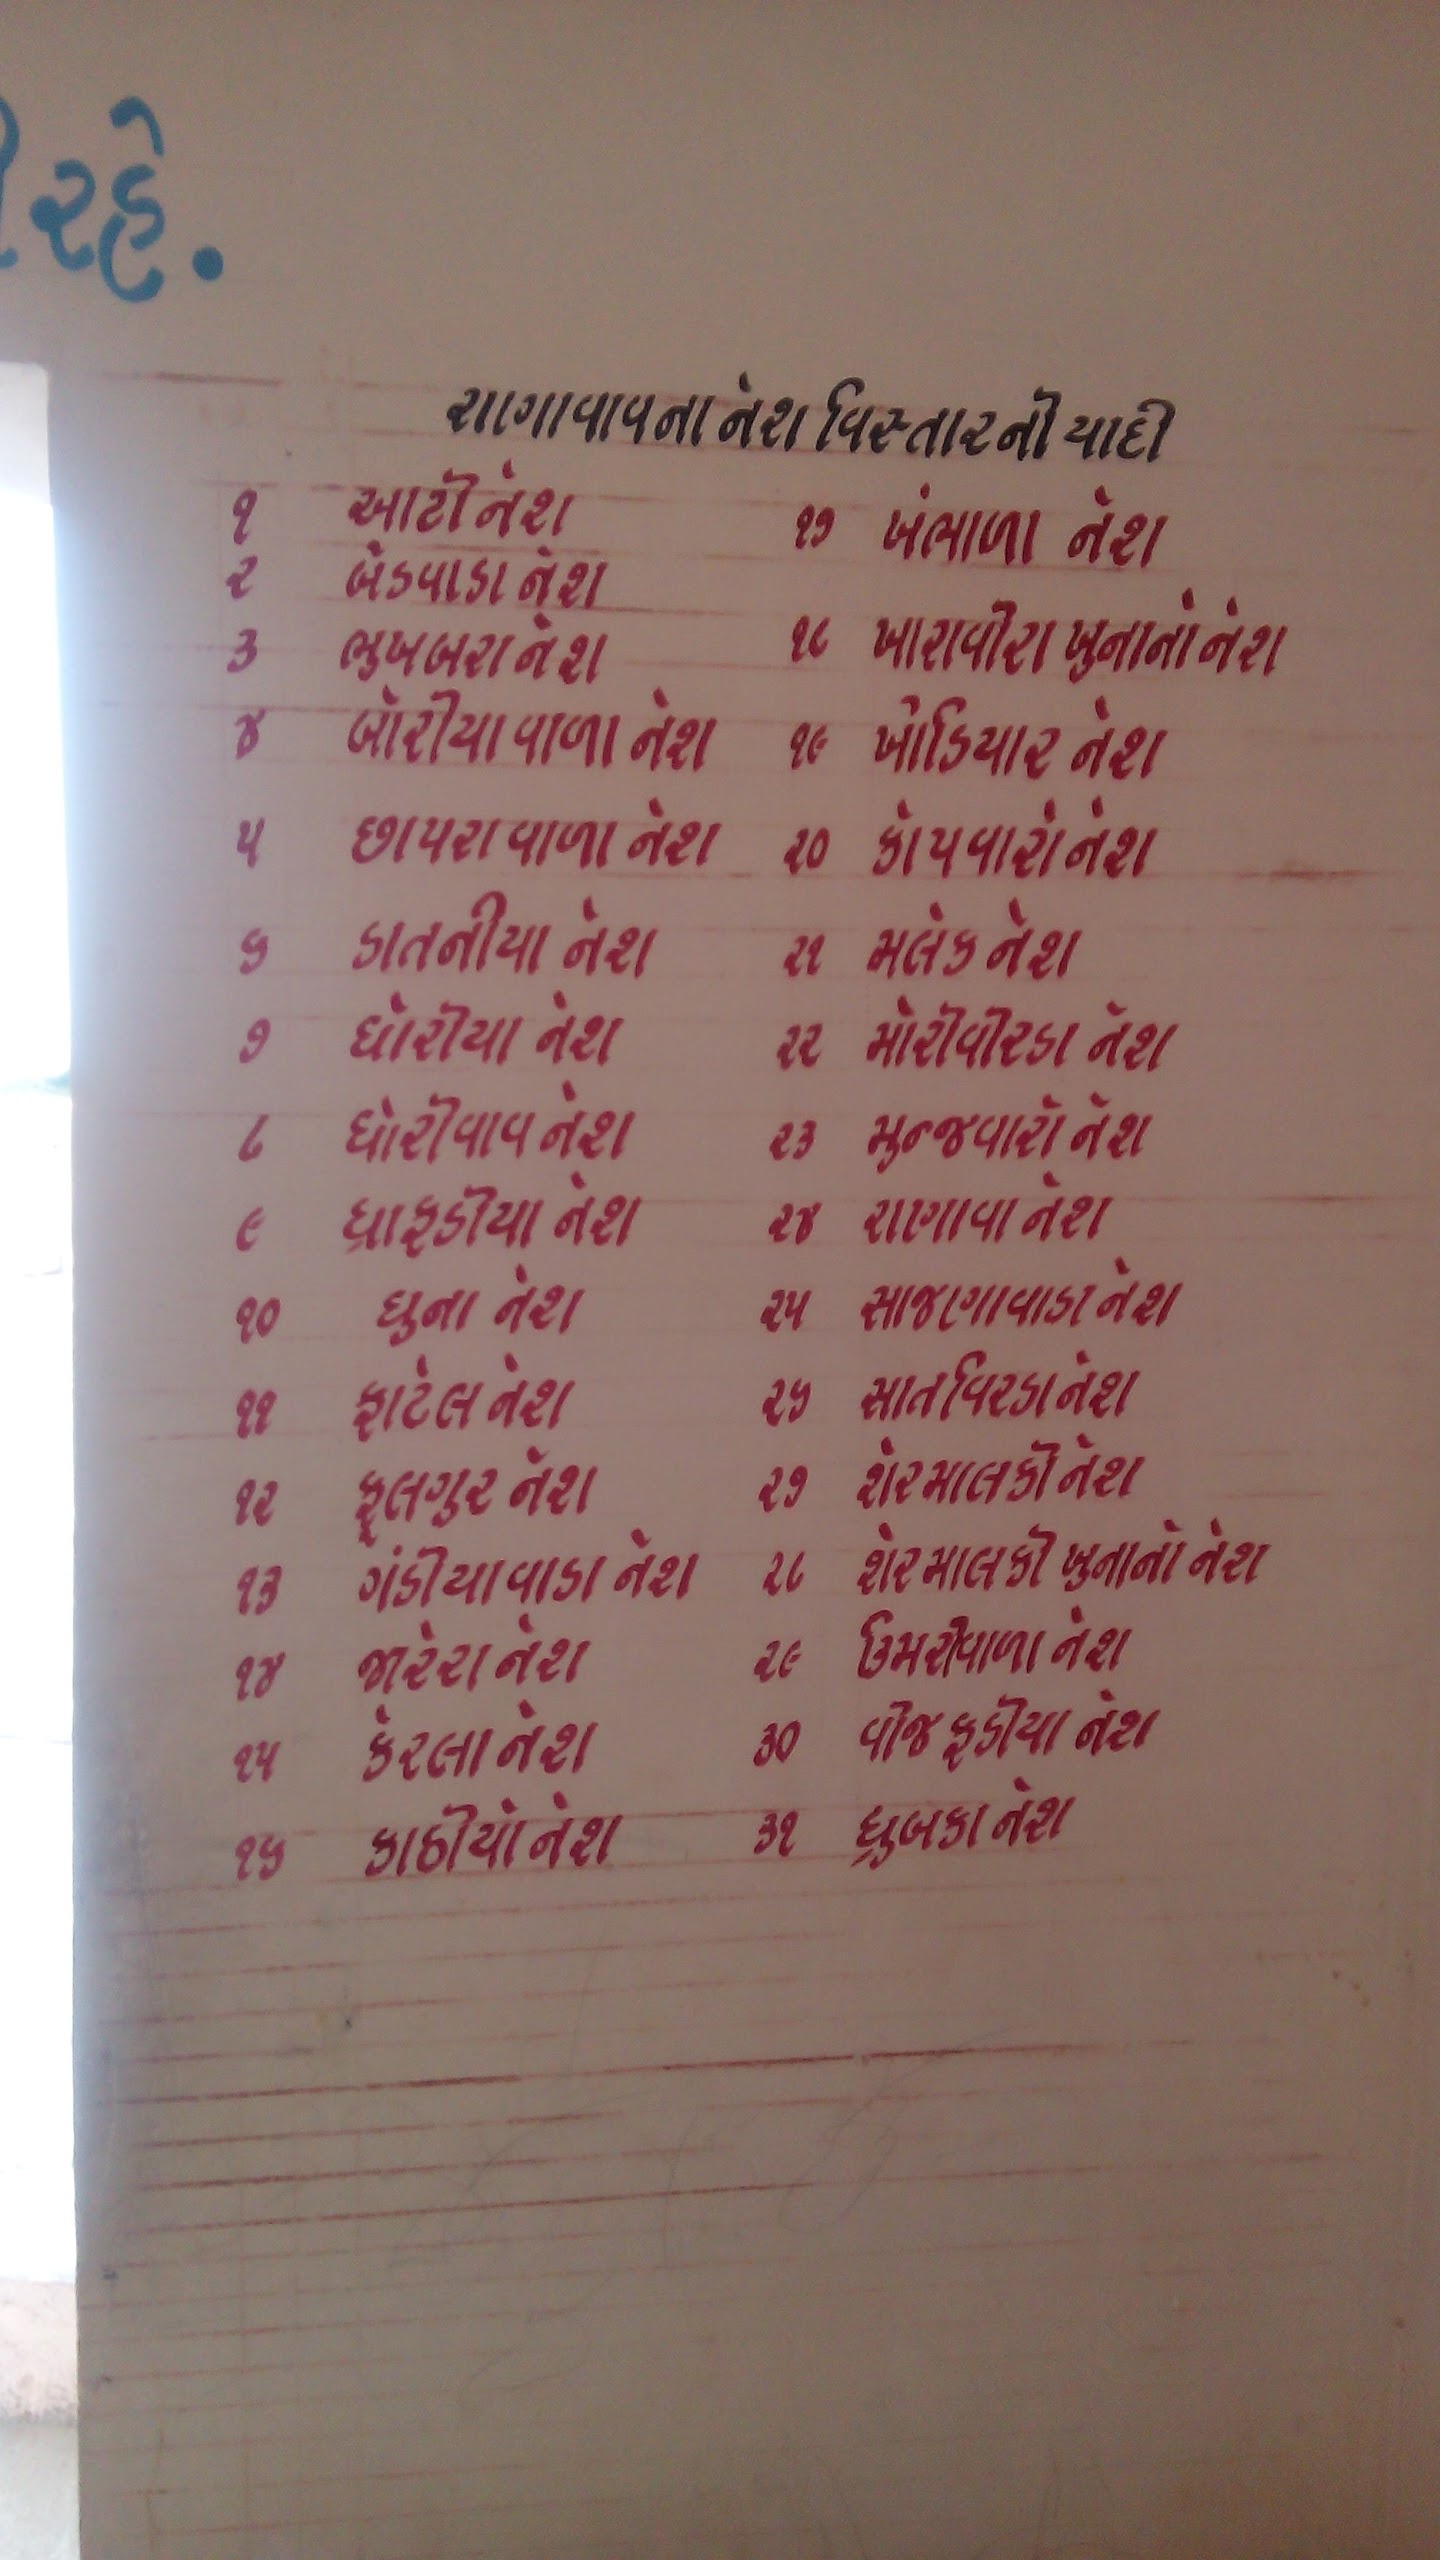 રહે.
રાણાવાવના નેશ વિસ્તારની યાદી
૧ આટી નેશ
૨ બેડવાડા નેશ
૩ ભુખબરા નેશ
૪ બોરીયાવાળા નેશ
૫ છાપરાવાળા નેશ
૬ ડાતનીયા નેશ
૭ ધોરીયા નેશ
૮ ધોરીવાવ નેશ
૯ ધ્રાફડીયા નેશ
૧૦ ધુના નેશ
૧૧ ફાટેલ નેશ
૧૨ ફૂલગુર નેશ
૧૩ ગંડીયાવાડા નેશ
૧૪ જારેરા નેશ
૧૫ કેરલા નેશ
૧૬ કાઠીયો નેશ
૧૭ ખંભાળા નેશ
૧૮ ખારાવીરા ખુનાનો નેશ
૧૯ ખોડિયાર નેશ
૨૦ કોપવારો નેશ
૨૧ મલેક નેશ
૨૨ મોરીવીરડા નેશ
૨૩ મુન્જવારો નેશ
૨૪ રાણાવા નેશ
૨૫ સાજણાવાડા નેશ
૨૬ સાતવિરડા નેશ
૨૭ શેરમાલકી નેશ
૨૮ શેરમાલકી ખુનાનો નેશ
૨૯ ઉમરીવાળા નેશ
૩૦ વીજફડીયા નેશ
૩૧ ધ્રુબકા નેશ